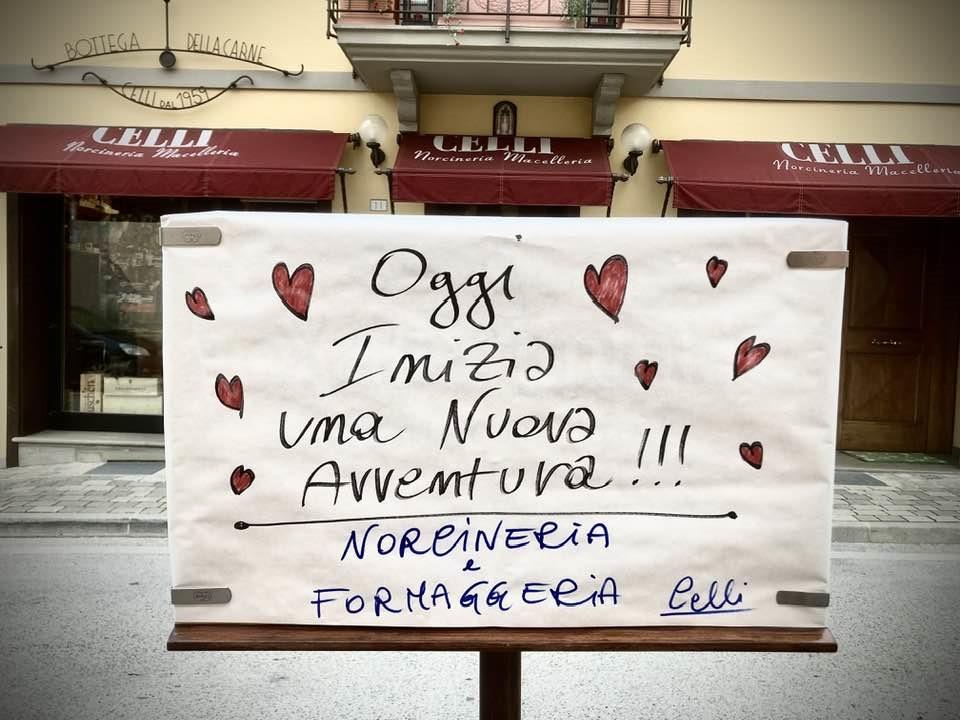 BOTTEGA DELLA CARNE
CELLI DAL 1959
CELLI
Norcineria Macelleria
CELLI
Norcineria Macelleria
CELLI
Norcineria Macelleria
31
Oggi
Inizia
una Nuova
Avventura!!!
NORCINERIA
e
FORMAGGERIA Celli